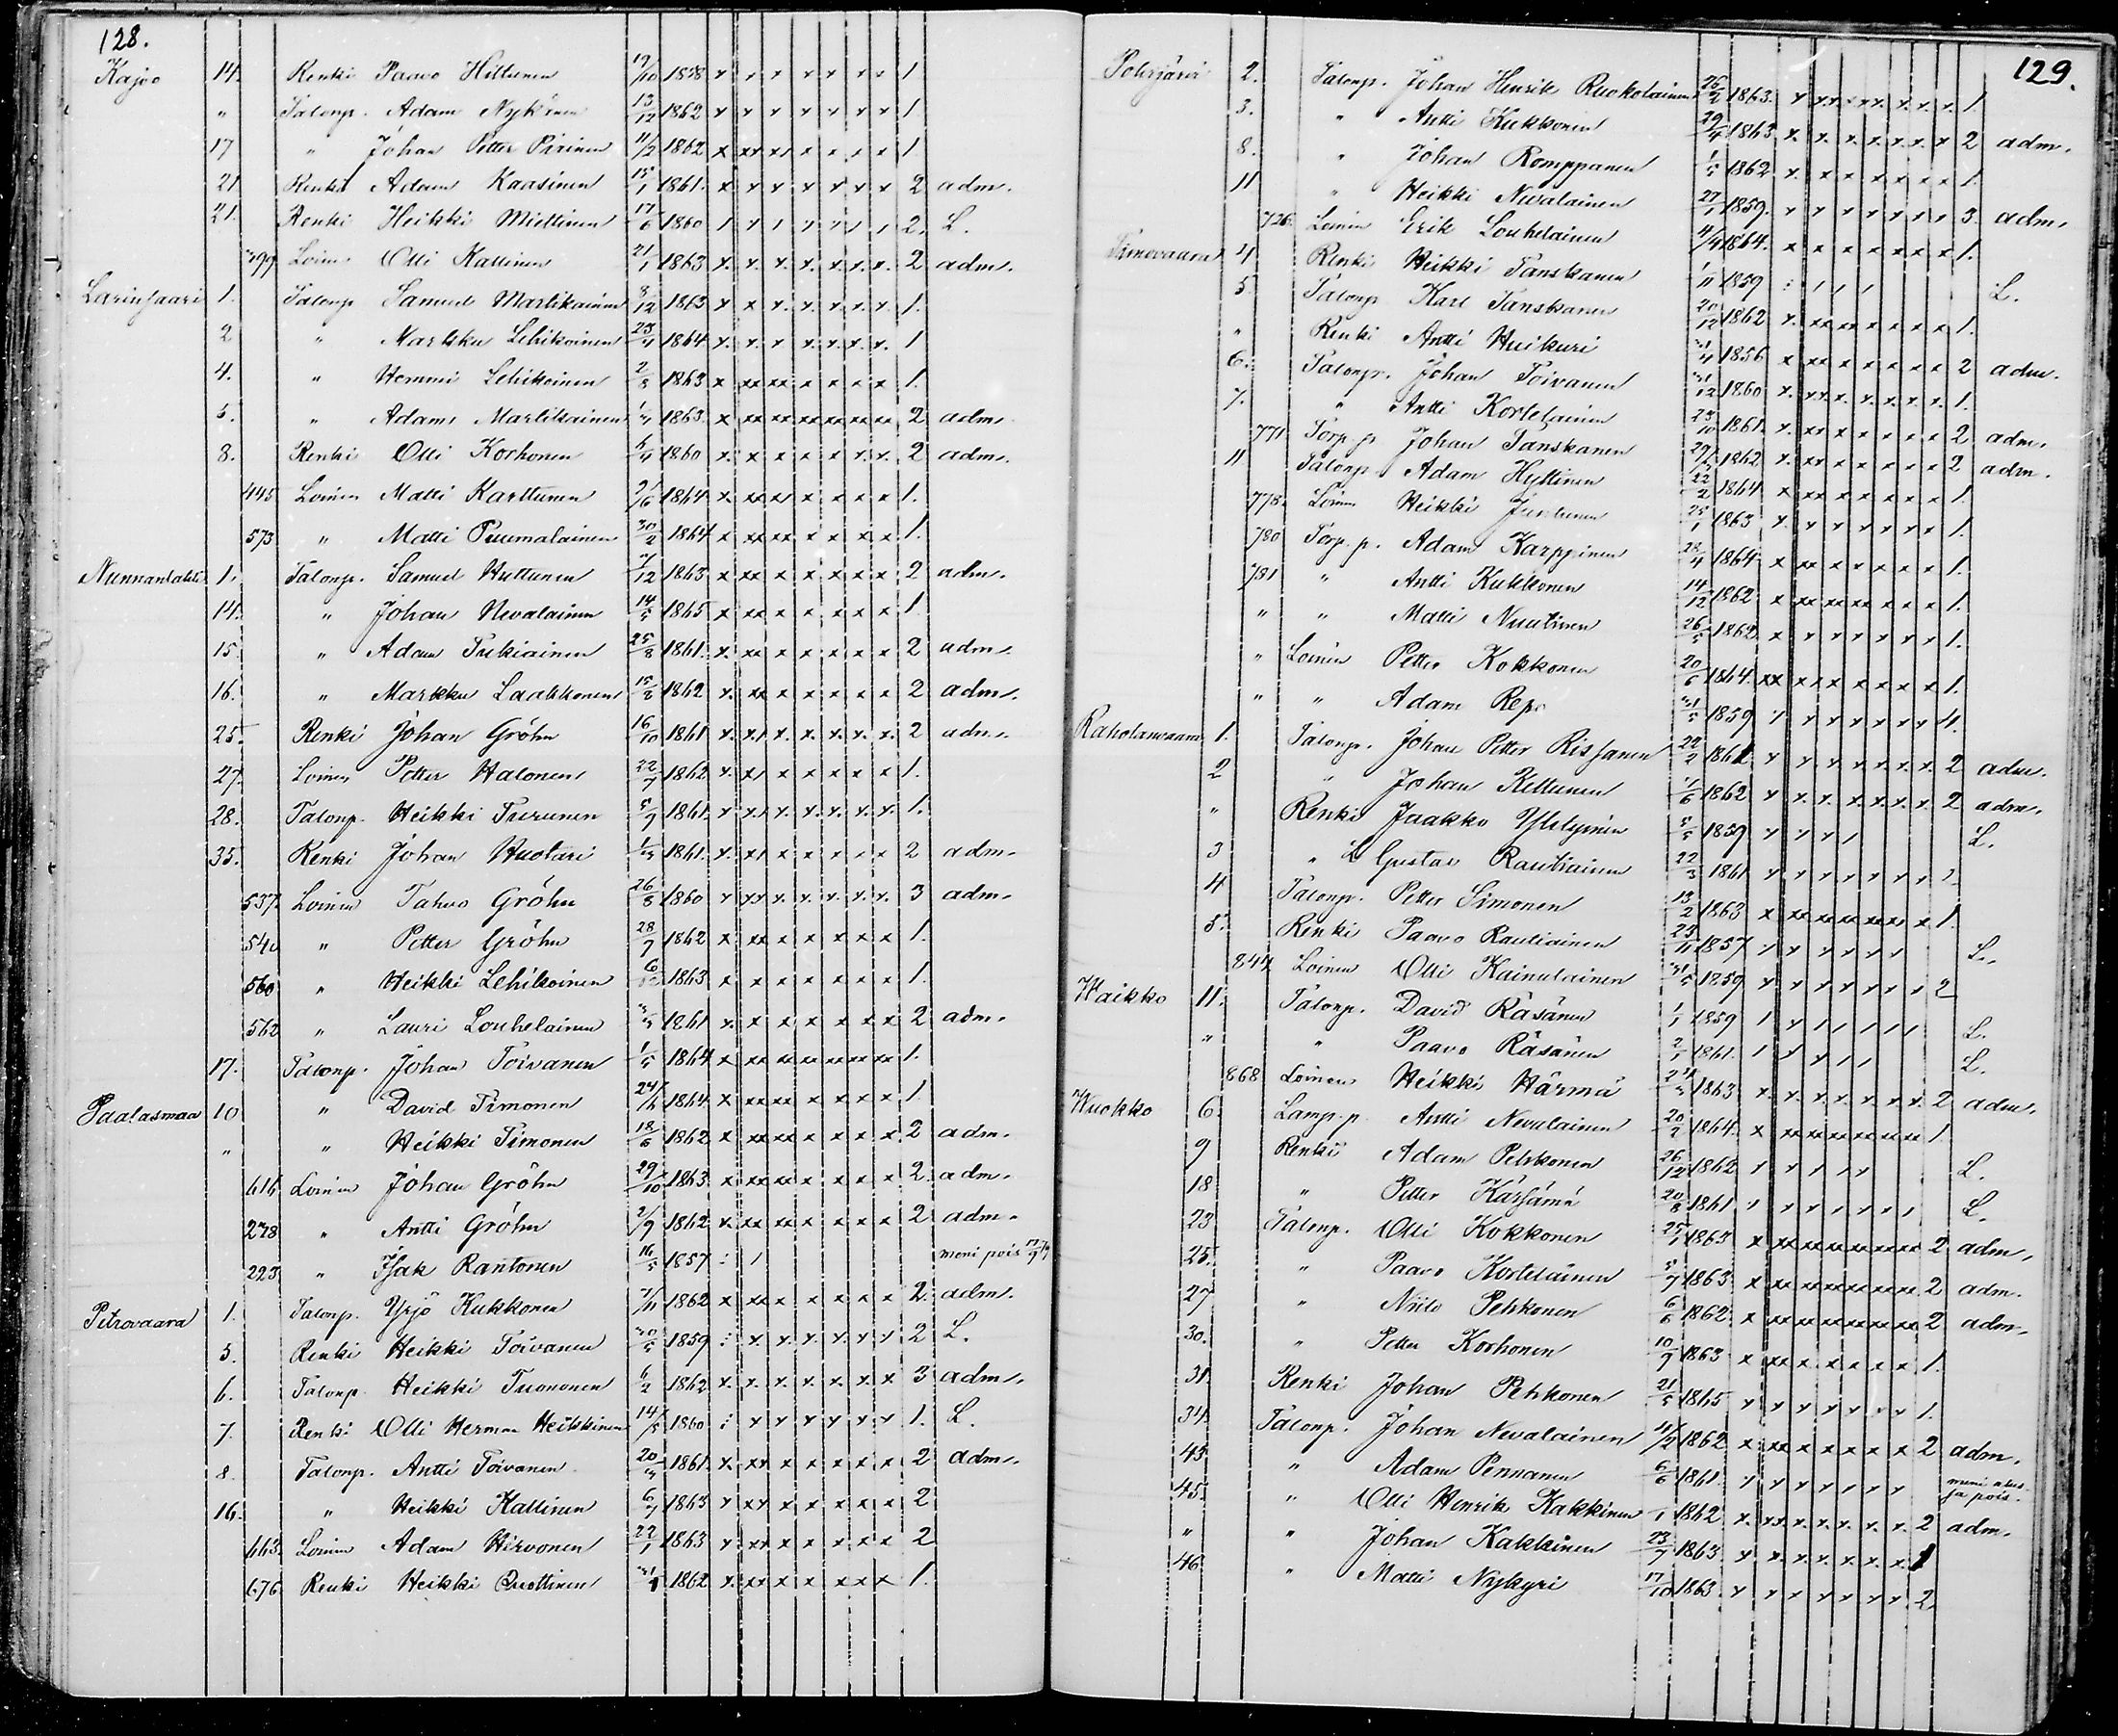 128.
Kajoo 14. Renki Paavo Hiltunen 19/10 1858 x x x x x x x 1
" Talonp. Adam Nykänen 13/12 1862 x x x x x x x 1
17 " Johan Petter Pirinen 11/2 1862 x xx x x x x x x 1
21 Renki Adam Kaasinen 15/1 1861. x x x x x x x 2 adm.
21. Renki Heikki Miettinen 17/6 1860 2. L.
399 Loinen Olli Kallinen 21/1 1863 x. x. x. x. x. x. x. 2 adm.
Larinsaari 1. Talonp Samuel Martikainen 8/12 1863 x x x. x. x. x. x. 1.
2 " Markku Lehikoinen 23/4 1864 x. x. x x x. x. x. 1
4. " Hemmi Lehikoinen 2/3 1863 x xx xx x x x x 1.
5. " Adam Martikainen 1863 x xx xx xx xx xx xx 2 adm.
8. Renki Olli Korhonen 1860 x. x x x x x. x. 2 adm.
445 Loinen Matti Karttunen 1864 x. xx xx x x x x 1.
573 " Matti Puumalainen 30/2 1864 x xx xx x x x x 1.
Nunnanlahti 1. Talonp. Samuel Huttunen 1863 x xx x x x x x 2 adm.
14. " Johan Nevalainen 14/5 1865 x xx x x x x x 1
15. " Adam Tukiainen 25/8 1861. x. xx x x x x x 2 adm.
16. " Markku Laakkonen 1862 x. xx x x x x x 2 adm.
25. Renki Johan Gröhn 16/10 1861 x. x x. x. x. x. x. 2 adm.
27. Loinen Petter Halonen 22/7 1862 x. x x x x x x 1.
28. Talonp. Heikki Turunen 5/7 1861. x x x. x. x. x. x. 1.
35. Renki Johan Huotari 1861. x. x x x x x x 2 adm.
537. Loinen Tahvo Gröhn 26/8 1860 x xx x. x. x. x. x. 3 adm.
540 " Petter Gröhn 28/7 1862 x xx x x x x x 1.
560 " Heikki Lehikoinen 1863 x x x x x x x 1.
562 " Lauri Louhelainen 1861 x. x x x x x x 2 adm.
17. Talonp. Johan Toivanen 1/5 1864 x xx xx xx xx xx xx 1.
Paalasmaa 10 " David Timonen 1864. x xx xx x x x x 1
" " Heikki Timonen 18/6 1862 x xx xx x x x x. 2 adm.
616 Loinen Johan Gröhn 29/10 1863 x xx xx x x x x 2. adm.
278 " Antti Gröhn 2/9 1862 x. xx xx x x x x 2 adm.
223 " Isak Rantonen 16/5 1857 meni pois
Petrovaara 1. Talonp. Yrjö Kukkonen 7/11 1862 x xx x x x x x 2. adm.
5. Renki Heikki Toivanen 30/5 1859 : x. x. x. x. x x 2 L.
6. Talonp. Heikki Tuononen 6/2 1862 x. x. x. x. x. x x 3 adm.
7. Renki Olli Herman Heikkinen 14/5 1860 : x x x x x x 1. L.
8. Talonp. Antti Toivanen 1861. x. xx x x x x x 2 adm.
16. " Heikki Kallinen 6/7 1863 x xx x x x x x 2
663. Loinen Adam Hirvonen 22/1 1863 x. xx x x x x x 2
676 Renki Heikki Quottinen 1862 x. xx x x x x x 1.
129.
Polvijärvi 2. Talonp. Johan Henrik Ruokolainen 26/2 1863. x x.x. x x x. x. x. x. 1.
3. " Antti Kukkonen 29/4 1863 x. x. x. x. x. x. x 2 adm.
8. " Johan Romppanen 1/5 1862 x. x x x x x x 1.
11 " Heikki Nevalainen 27/1 1859. x x x x x x x 3. adm.
726. Loinen Erik Louhelainen 1864. x x x x x x x 1.
Timovaara 4 Renki Heikki Tanskanen 1859 : L.
5. Talonp. Karl Tanskanen 20/12 1862 x. xx xx x x x x 1.
" Renki Antti Huikuri 1856 x xx x x x x x 2 adm.
6. Talonp. Johan Toivanen 1860 x. xx. x. x. x. x. x. 1.
7. " Antti Kortelainen 23/10 1861. x. xx x x x x x 2 adm.
771 Torp. p. Johan Tanskanen 1862 x. xx x x x x x 2 adm.
11 Talonp. Adam Hyttinen 22/2 1864 x xx x x x x x 1.
778. Loinen Heikki Juntunen 25/1 1863 x. x x x x x x 1.
780 Torp. p. Adam Karppinen 28/4 1864. x xx x x x x x 1.
781 " Antti Kukkonen 14/12 1862 x xx xx xx x x x 1.
" " Matti Nuutinen 26/5 1862 x x x x x x x 1.
" Loinen Petter Kokkonen 20/6 1864. xx x x x x x x x 1.
" " Adam Repo 1859 x x x x x x x 4.
Raholanvaara 1. Talonp. Johan Petter Rissanen 22/2 1861 x x x x x. x. x. 2 adm.
2 " Johan Kettunen 1862 x x. x. x. x. x. x. 2 adm.
" Renki Jaakko Yletyinen 5/5 1859 x x x L.
3 " Gustav Rautiainen 22/3 1861 x x x x x x x
4 Talonp. Petter Simonen 13/2 1863 x xx xx xx xx xx x 1.
5. Renki Paavo Rautiainen 23/11 1857 L.
844 Loinen Olli Kainulainen 1859 x x x x x x 2
Waikko 11. Talonp. David Räsänen 1/1 1859 L.
" " Paavo Räsänen 2/1 1861. L.
868 Loinen Heikki Härmä 1863 x. x. x. x. x. x. x. 2 adm.
Wuokko 6. Lamp. p. Antti Nevalainen 20/2 1864. x xx xx xx xx xx xx 1
9 Renki Adam Pehkonen 26/12 1862 L.
18 " Petter Kärsämä 20/8 1861 L.
23 Talonp. Olli Kokkonen 25/1 1863 x xx xx xx xx xx xx 2 adm.
25. " Paavo Kortelainen 5/7 1863 x xx xx xx xx xx xx 2 adm.
27 " Niilo Pehkonen 6/6 1862. x xx xx xx xx xx xx 2 adm.
30. " Petter Korhonen 10/9 1863 x xx x x x x x 1.
31. Renki Johan Pehkonen 21/5 1865 x x x x x x x 1.
34. Talonp. Johan Nevalainen 11/2 1862 x xx x x x x x 2 adm.
43 " Adam Pennanen 6/6 1861. meni ulos ja pois.
45. " Olli Henrik Kakkinen 1862 x. xx. x. x. x. x. x. 2 adm.
" " Johan Kakkinen 23/7 1863 x x. x. x. x. x. x. 1
46 " Matti Nykyri 17/10 1863 x x x x x x x 2.